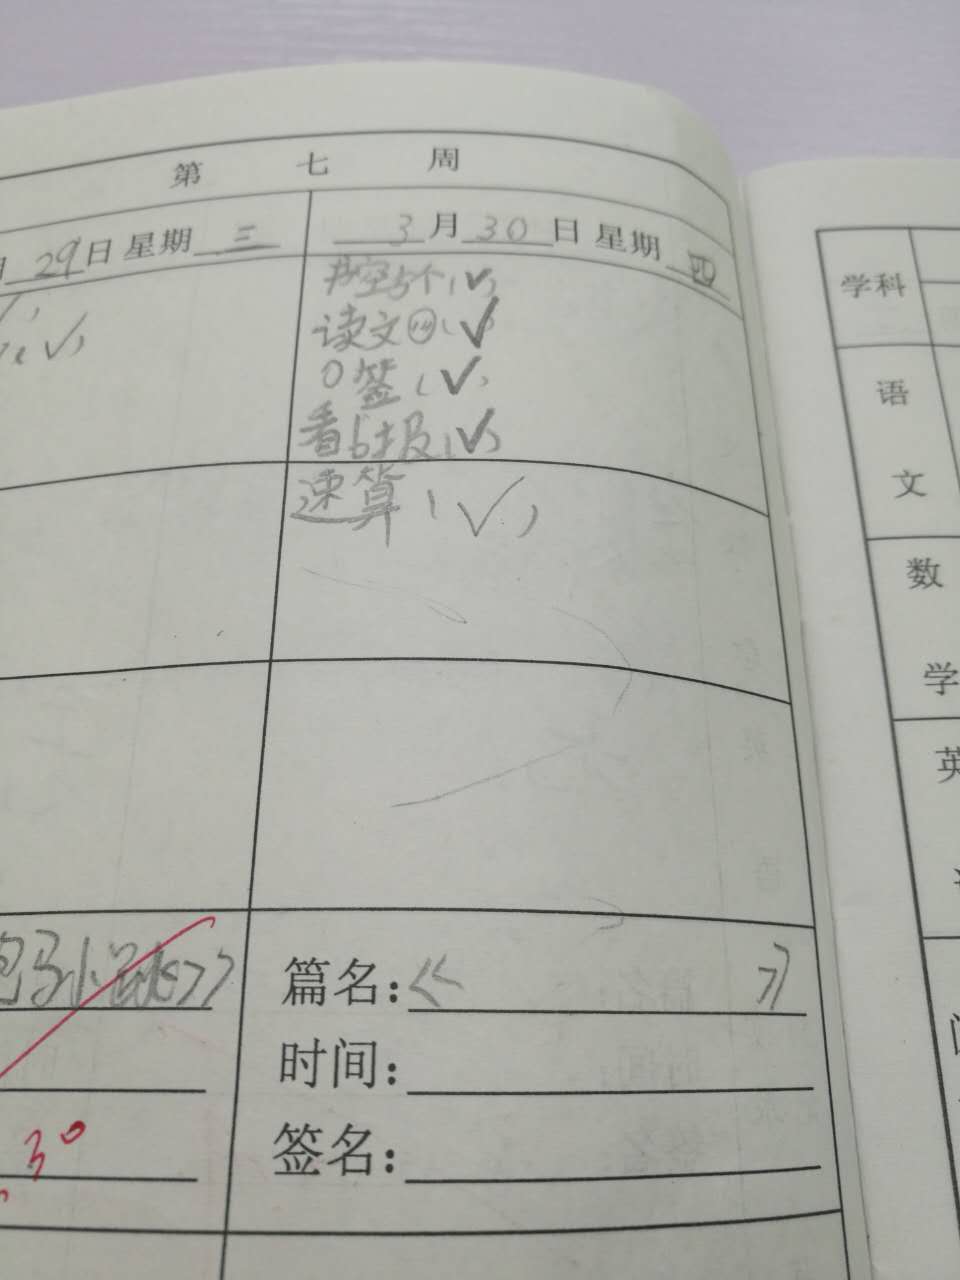 第 七 周
29日 星期 三
3月30日 星期 四
书空5个(✓)
读文⑭(✓)
0签(✓)
看b报(✓)
速算(✓)
马小跳》
3°
篇名:《 》
时间:
签名:
学科
语
文
数
学
英